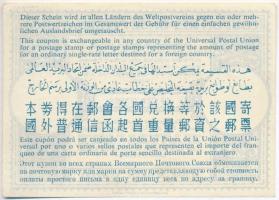 Dieser Schein wird in allen Ländern des Weltpostvereins gegen ein oder meh-
rere Postwertzeichen im Gesamtwert der Gebühr für einen einfachen gewöhn-
lichen Auslandsbrief umgetauscht.
This coupon is exchangeable in any country of the Universal Postal Union
for a postage stamp or postage stamps representing the amount of postage
for an ordinary single-rate letter destined for a foreign country.
本券得在郵會各國兌換等於該國寄
國外普通信函起首重量郵資之郵票
Este cupón podrá ser canjeado en todos los Países de la Unión Postal Univer-
sal por uno o varios sellos postales que representen el importe del fran-
queo de una carta ordinaria de porte sencillo destinada al extranjero.
Этот купон во всех странах Всемирного Почтового Союза обменивается
на почтовую марку или марки на сумму представляющую собой стоимость
оплаты простого письма в одну единицу веса по адресу за границу.